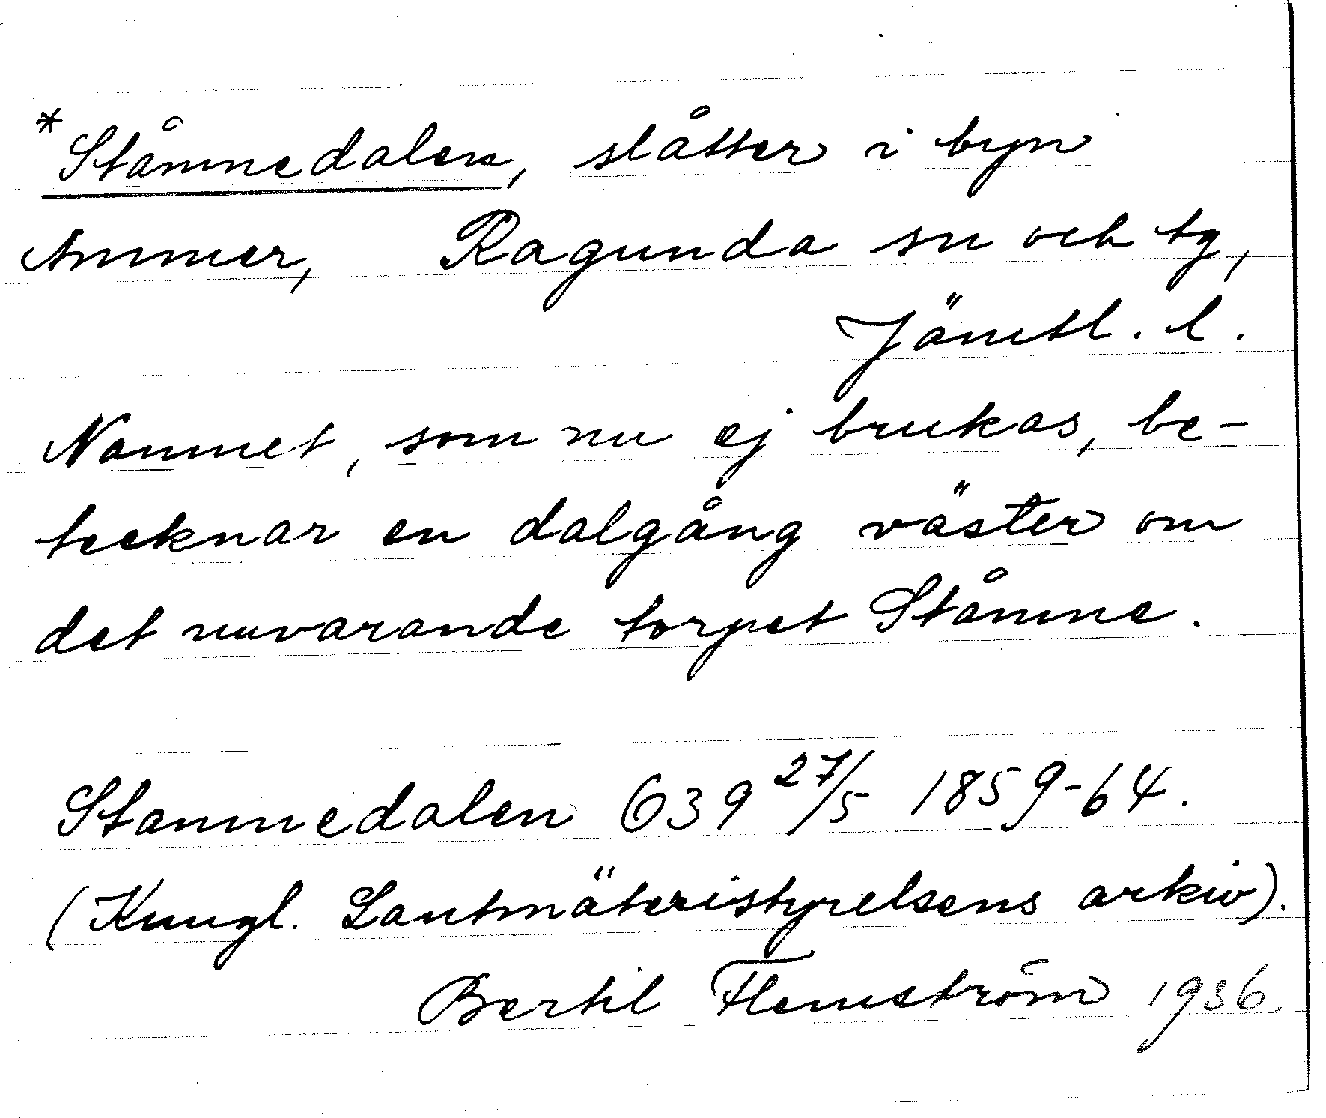 *Ståmnedalen, slåtter i byn
Ammer, Ragunda sn och tg,
Jämtl. l.
Namnet, som nu ej brukas, be-
tecknar en dalgång väster om
det nuvarande torpet Ståmne.
Stamnedalen 639 27/5 1859-64.
(Kungl. Lantmäteristyrelsens arkiv).
Bertil Flemström 1936.